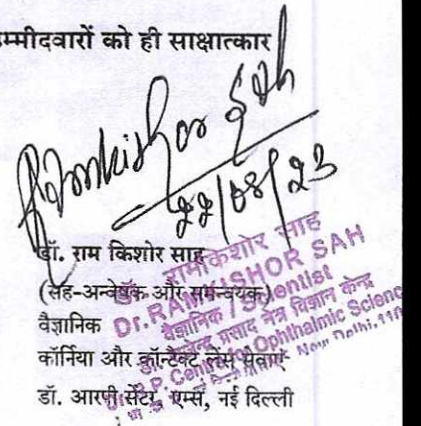 म्मीदवारों को ही साक्षात्कार
Ramkishor Sah
22/08/23
डॉ. राम किशोर साह
(सह-अन्वेषक और समन्वयक)
वैज्ञानिक
कॉर्निया और कॉन्टैक्ट लेंस सेवाएं
डॉ. आरपी सेंटर, एम्स, नई दिल्ली
रामकिशोर साह
Dr. RAMKISHOR SAH
वैज्ञानिक / Scientist
प्रसाद नेत्र विज्ञान केन्द्र
R.P. Centre Ophthalmic Scienc
New Delhi